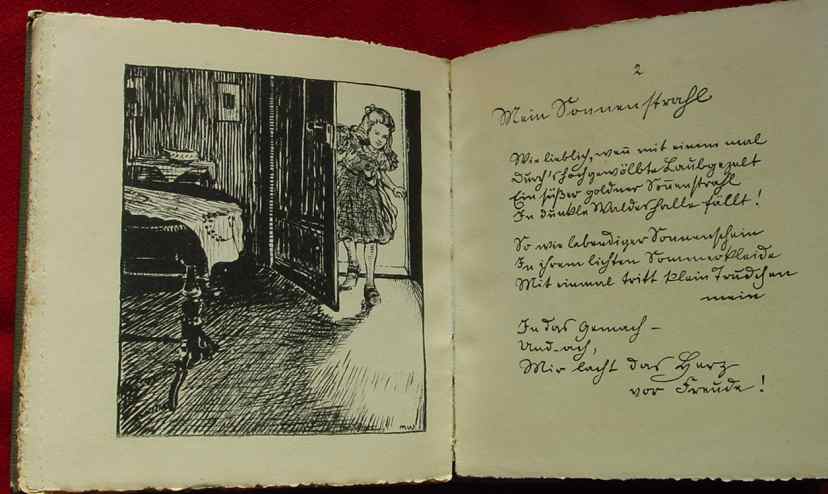 MW
2
Mein Sonnenstrahl
Wie lieblich, wen̄ mit einem mal
Durch's hochgewölbte Laubgezelt
Ein süßer goldner Son̄enstrahl
In dunkle Waldeshalle fällt!
So wie lebendiger Sonnenschein
In ihrem lichten Sommerkleide
Mit einemal tritt klein Trudchen
mein
In das Gemach –
Und – ach,
Mir lacht das Herz
vor Freude!